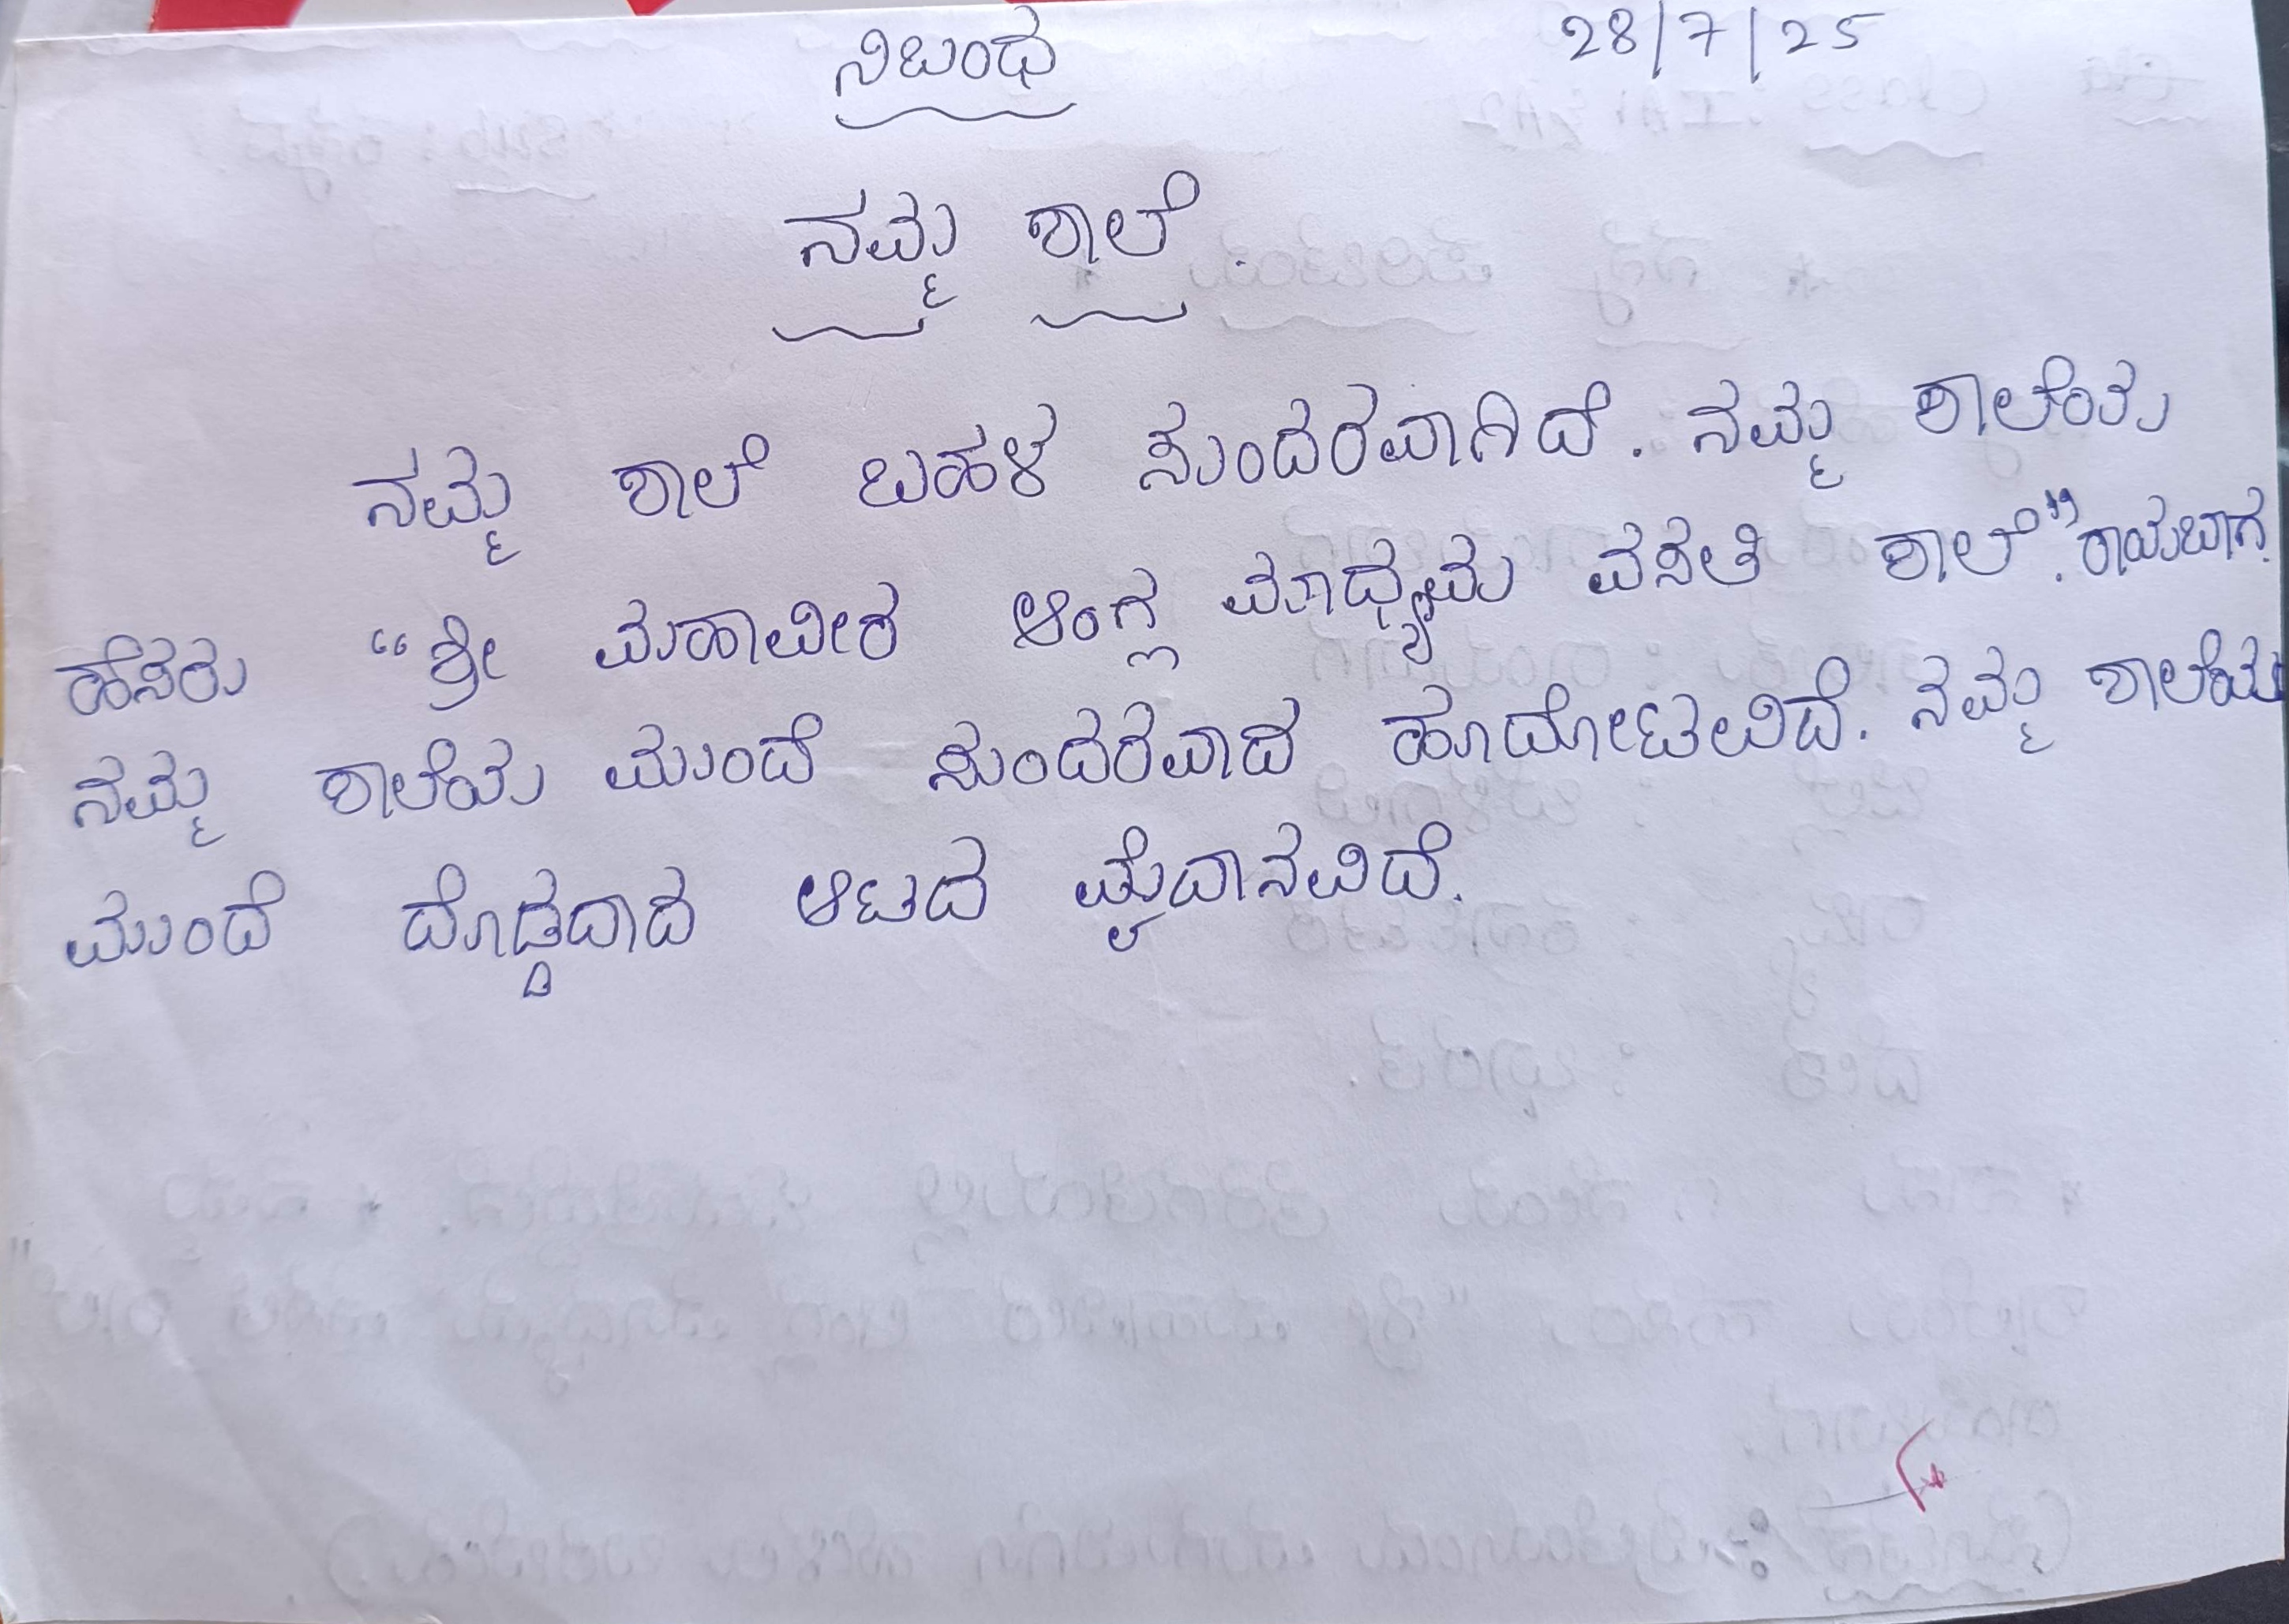 28/7/25
ನಿಬಂಧ
ನಮ್ಮ ಶಾಲೆ.
ನಮ್ಮ ಶಾಲೆ ಬಹಳ ಸುಂದರವಾಗಿದೆ. ನಮ್ಮ ಶಾಲೆಯ
ಹೆಸರು “ಶ್ರೀ ಮಹಾವೀರ ಆಂಗ್ಲ ಮಾಧ್ಯಮ ವಸತಿ ಶಾಲೆ”. ರಾಯಬಾಗ.
ನಮ್ಮ ಶಾಲೆಯ ಮುಂದೆ ಸುಂದರವಾದ ಹೂದೋಟವಿದೆ. ನಮ್ಮ ಶಾಲೆಯ
ಮುಂದೆ ದೊಡ್ಡದಾದ ಆಟದ ಮೈದಾನವಿದೆ.